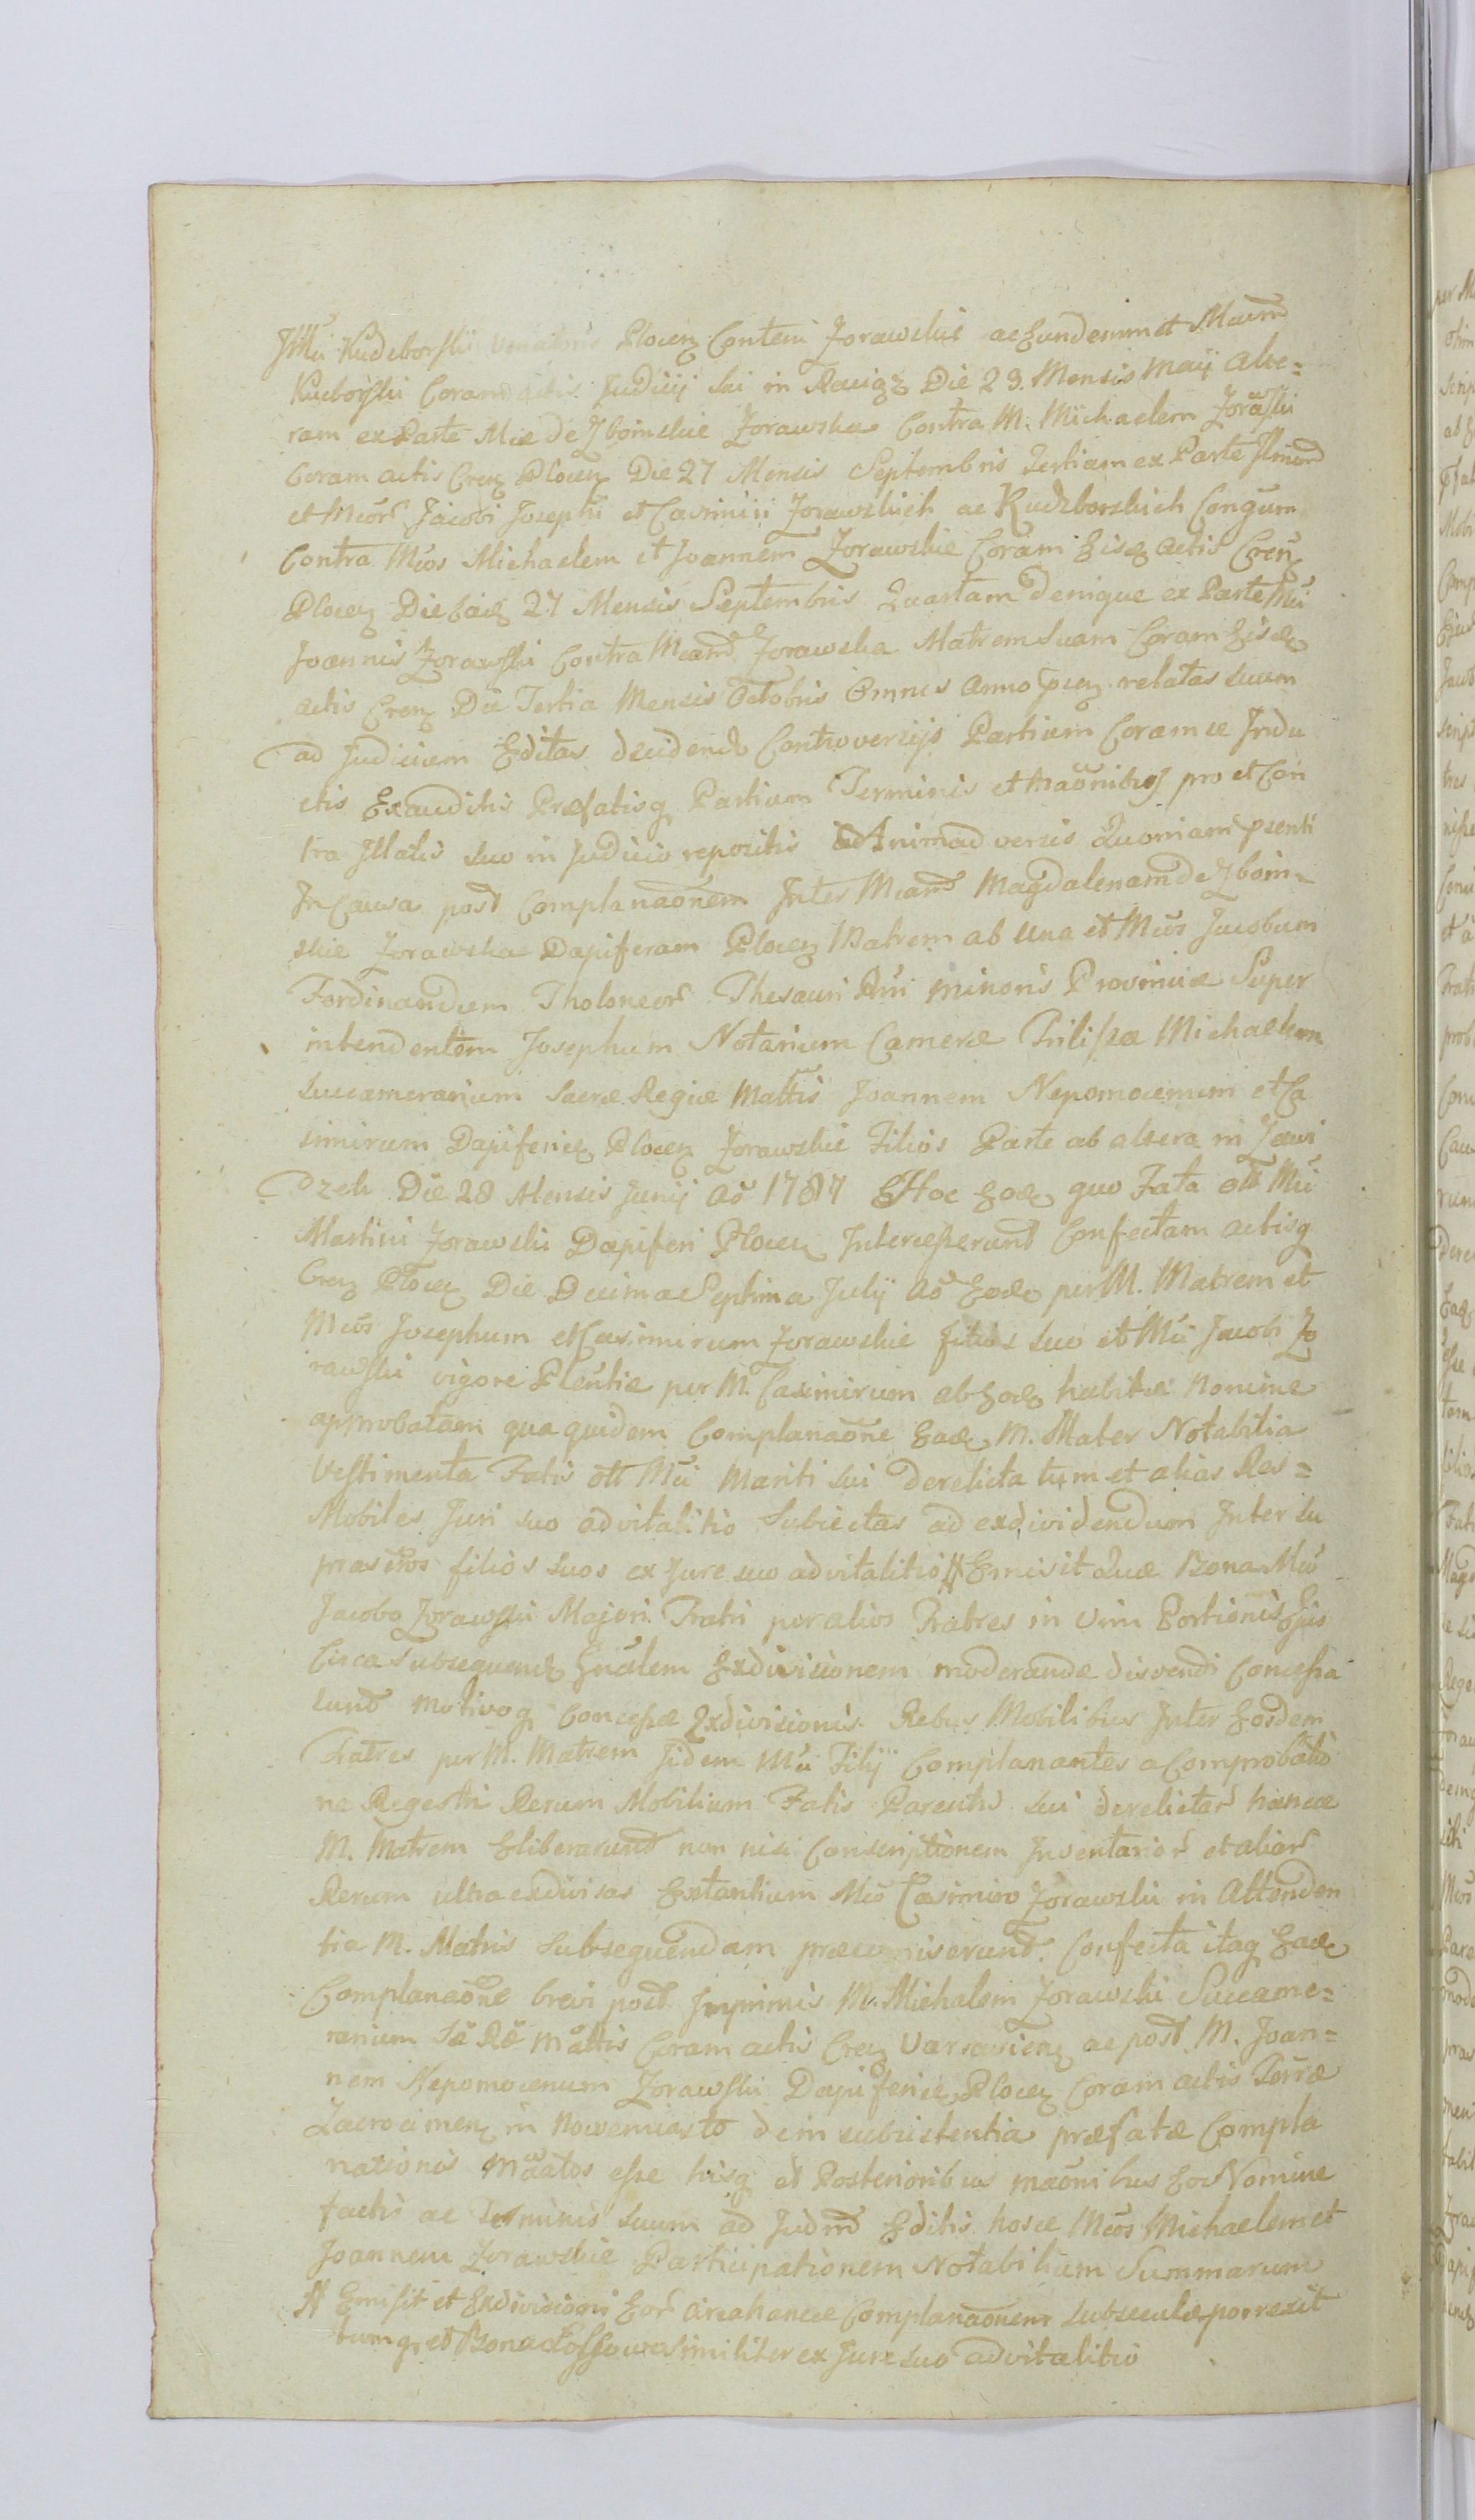 Illu Kudzborski Venatoris Plocen Conteni Zorawskie ac Eundemmet Mcum
Kuczborski Coram actis Judicij Sui in Raciąż Die 23. Mensis Maij Alte=
ram ex Parte Mae de Zboinskie Zorawska Contra M. Michaelem Zorawski
Coram actis Cren Plocen Die 27 Mensis Septembris Tertiam ex Parte
et Mcor Jacobi Josephi et Casimiri Zorawskich ac Kudzborskich Congum
Contra Mcos Michaelem et Joannem Zorawskie Coram Eisd actis Cren
Plocen Die Ead 27 Mensis Septembris Quartam Denique ex Parte Mci
Joannis Zorawski Contra Mcam Zorawska Matrem Suam Coram Eisd
actis Cren Die Tertia Mensis Octobris Omnes Anno psen relatas Suum
ad Judicium Editas decidend Controversijs Partium Coram se Indu
ctis Exauditis Præfatisq Partium Terminis et maonibus pro et Con
tra Illatis suo in Judicio repositis Animadversis Quoniam psenti
In Causa post Complanaonem Inter Mcam Magdalenam de Zboin=
skie Zorawska Dapiferam Plocen Matrem ab una et Mcos Jacobum
Ferdinandum Tholoneor Thesauri Rni Minoris Provinciæ Super
intendentem Josephum Notarium Cameræ Michaelem
Succamerarium Sacræ Regiæ Mattis Joannem Nepomocenum et Ca
simirum Dapiferid Plocen Zorawskie Filios Parte ab altera in Zawi
dzch Die 28 Mensis Junij Ao 1787 Hoc Eod quo Fata olt Mci
Martini Zorawski Dapiferi Plocen Interceperunt Confectam actisq
Cren Plocen Die Decima Septima Julij Ao Eod per M. Matrem et
Mcos Josephum et Casimirum Zorawskie filios suo et Mci Jacobi Zo
rawski vigore Plentiæ per M. Casimirum ab Eod habitæ Nomine
approbatam qua quidem Complanaone Ead M. Mater Notabilia
Vestimenta Fatis olt Mci Mariti sui derelicta tum et alias Res=
Mobiles Juri suo advitalitio Subiectas ad exdividendum Inter Su
prascros filios suos ex Jure suo advitalitio # Emisit Quæ Bona Mco
Jacobo Zorawski Majori Fratri per alios Fratres in Vim Portionis Ejus
Circa Subsequend Gnalem Exdivisionem moderandæ disvendi Concessa
sunt Motivoq Concessæ Exdivisionis Rebus Mobilibus Inter Eosdem
Fratres per M. Matrem Iidem Mci Filij Complanantes a Comprobatio
ne Regestri Rerum Mobilium Fatis Parentis sui derelictar hancce
M. Matrem Eliberarunt non nisi Conscriptionem Inventarior et aliar
Rerum ultra exdivisas Extantium Mco Casimiro Zorawski in Attenden
tia M. Matris Subsequendam præcomiserunt. Confecta itaq Ead
Complanaone brevi post Imprimis M. Michalem Zorawski Succame=
rarium Sæ Ræ Mattis Coram actis Cren Varsavien ac post M. Joan=
nem Nepomocenum Zorawski Dapiferid Plocen Coram actis Terræ
Zacrocimen in Nowemiasto de in subsistentia præfatæ Compla
nationis Maatos esse hisq et Posterioribus maonibus Eo Nomine
factis ac Terminis Suum ad Judm Editis hosce Mcos Michaelem et
Joannem Zorawskie Participationem Notabilium Summarum
# Emisit et Exdivisioni Eor circa hancce Complanaonem subsecutæ porrexit
tumq et Bona similiter ex Jure suo advitalitio